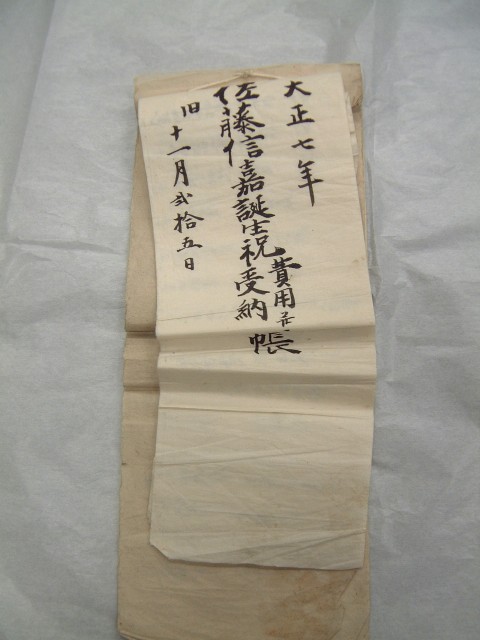 大正七年
佐藤信嘉誕生祝受納費用帳
旧十一月弐拾五日